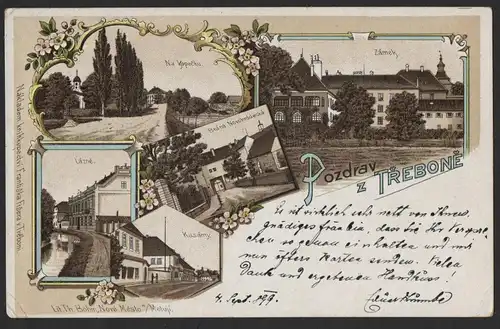 Na kopečku.
Zámek.
Lázně.
Kasárny.
Pozdrav
z TŘEBONĚ
Es ist wirklich sehr nett von Ihnen,
gnädiges Fräulein, dass Sie Ihr Verspre-
chen so genau einhalten und mir
nun öfters Karten senden. Vielen
Dank und ergebenen Handkuss!
4. Sept. 899.
Nákladem knihkupectví Františka v Třeboni.
Lit. Th. Böhm, Nové Město n/Metují.